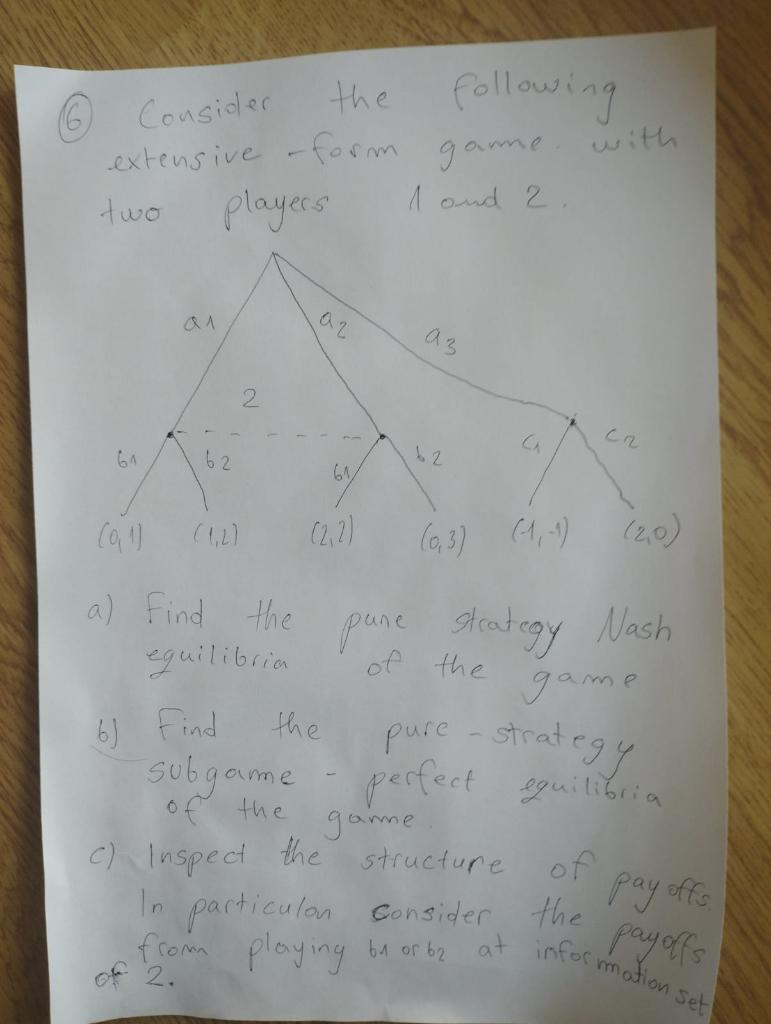 6 Consider the following
extensive-form game with
two players 1 and 2.
a1 a2 a3
2
b1 b2 b1 b2 c1 c2
(0,1) (1,2) (2,2) (0,3) (-1,-1) (2,0)
a) Find the pure strategy Nash
equilibria of the game
b) Find the pure-strategy
subgame-perfect equilibria
of the game.
c) Inspect the structure of payoffs.
In particular consider the payoffs
from playing b1 or b2 at information set
of 2.